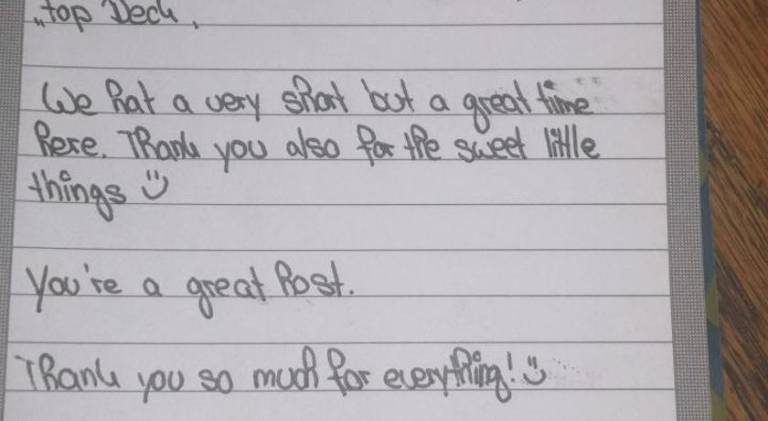 „top Deck,
We hat a very short but a great time
here. Thank you also for the sweet little
things ü
You're a great host.
Thank you so much for everything! ü